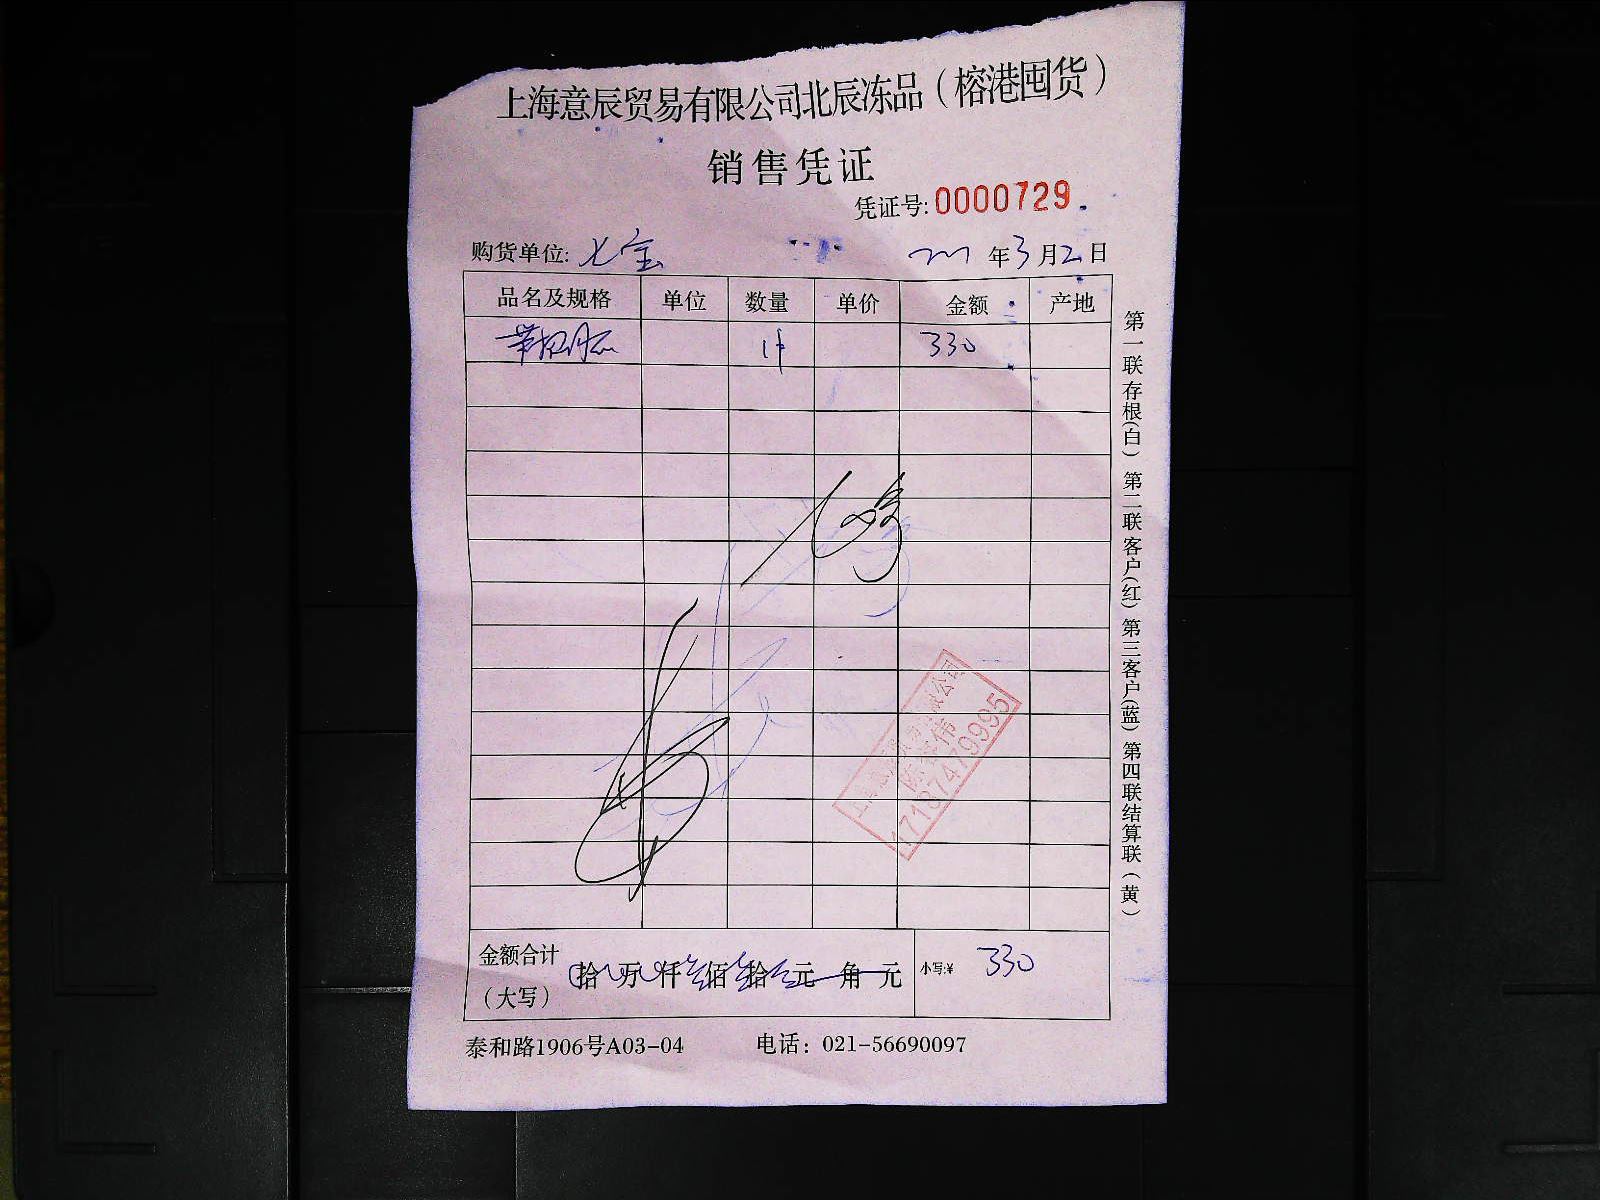 上海意辰贸易有限公司北辰冻品（榕港囤货）
销售凭证
凭证号:0000729
购货单位:七宝 年3月2日
品名及规格 单位 数量 单价 金额 产地
1件 330
第一联存根(白) 第二联客户(红) 第三客户(蓝) 第四联结算联(黄)
17187479995
金额合计（大写） 拾 万 仟 佰 拾 元 角 元 小写:¥ 330
泰和路1906号A03-04 电话：021-56690097